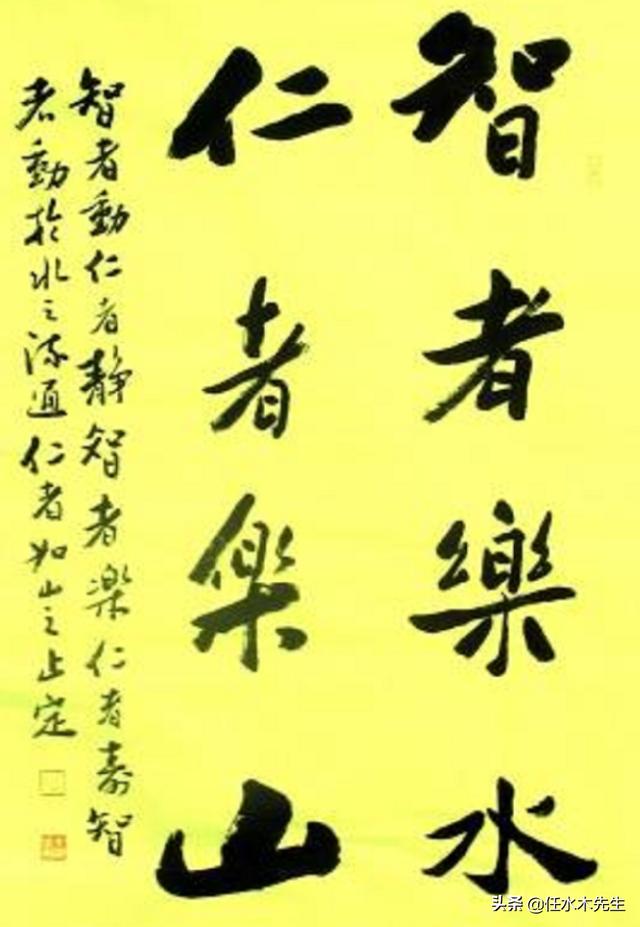 智者樂水
仁者樂山
智者動仁者靜智者樂仁者壽智
者動於水之流通仁者如山之止定
头条 @任水木先生